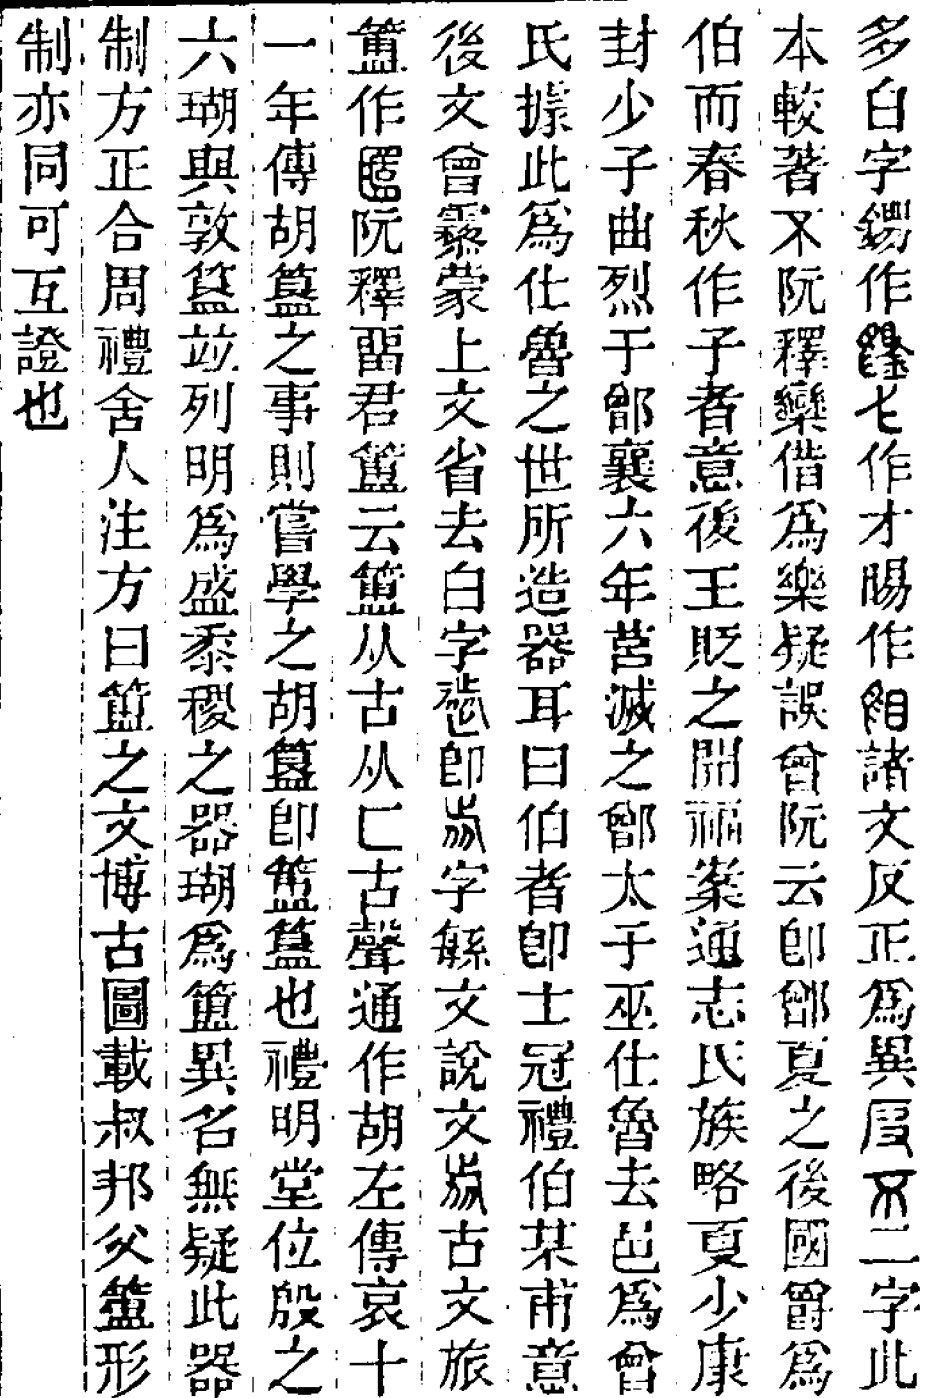 多白字鍚作作才賜作諸文反正為異二字此
本較著不阮釋欒借為樂疑誤曾阮云卽鄫夏之後國爵為
伯而春秋作子者意後王貶之開禰案通志氏族略夏少康
封少子曲烈于鄫襄六年莒滅之鄫太子巫仕魯去邑為曾
氏據此為仕魯之世所造器耳曰伯者卽士冠禮伯某甫意
後文曾霥蒙上文省去白字卽字緐文說文古文旅
簠作阮釋留君簠云簠从古从匚古聲通作胡左傳哀十
一年傳胡簋之事則嘗學之胡簋卽簠簋也禮明堂位殷之
六瑚與敦簋竝列明為盛黍稷之器瑚為簠異名無疑此器
制方正合周禮舍人注方曰簠之文博古圖載叔邦父簠形
制亦同可互證也